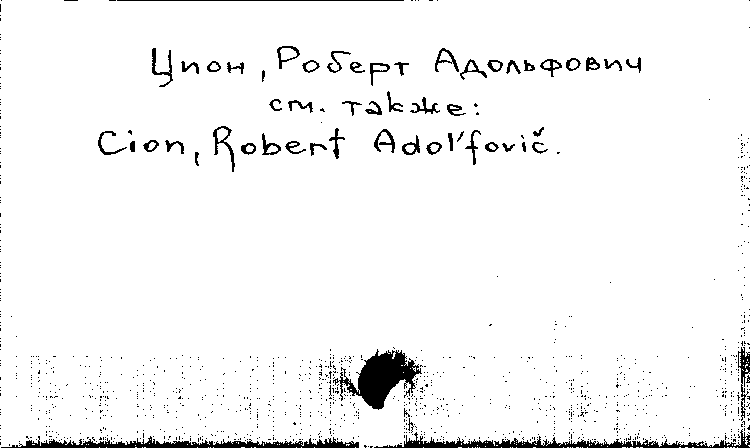 Цион, Роберт Адольфович
см. также:
Cion, Robert Adol'fovič.